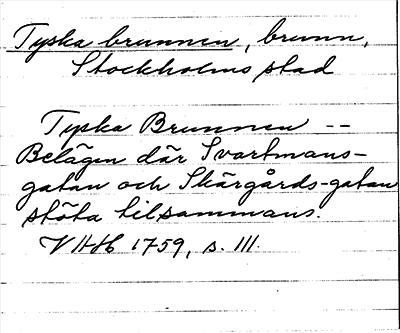 Tyska brunnen, brunn,
Stockholms stad
Tyska Brunnen --
Belägen där Svartmans-
gatan och Skärgårds-gatan
stöta tilsammans.
VHH 1759, s. 111.